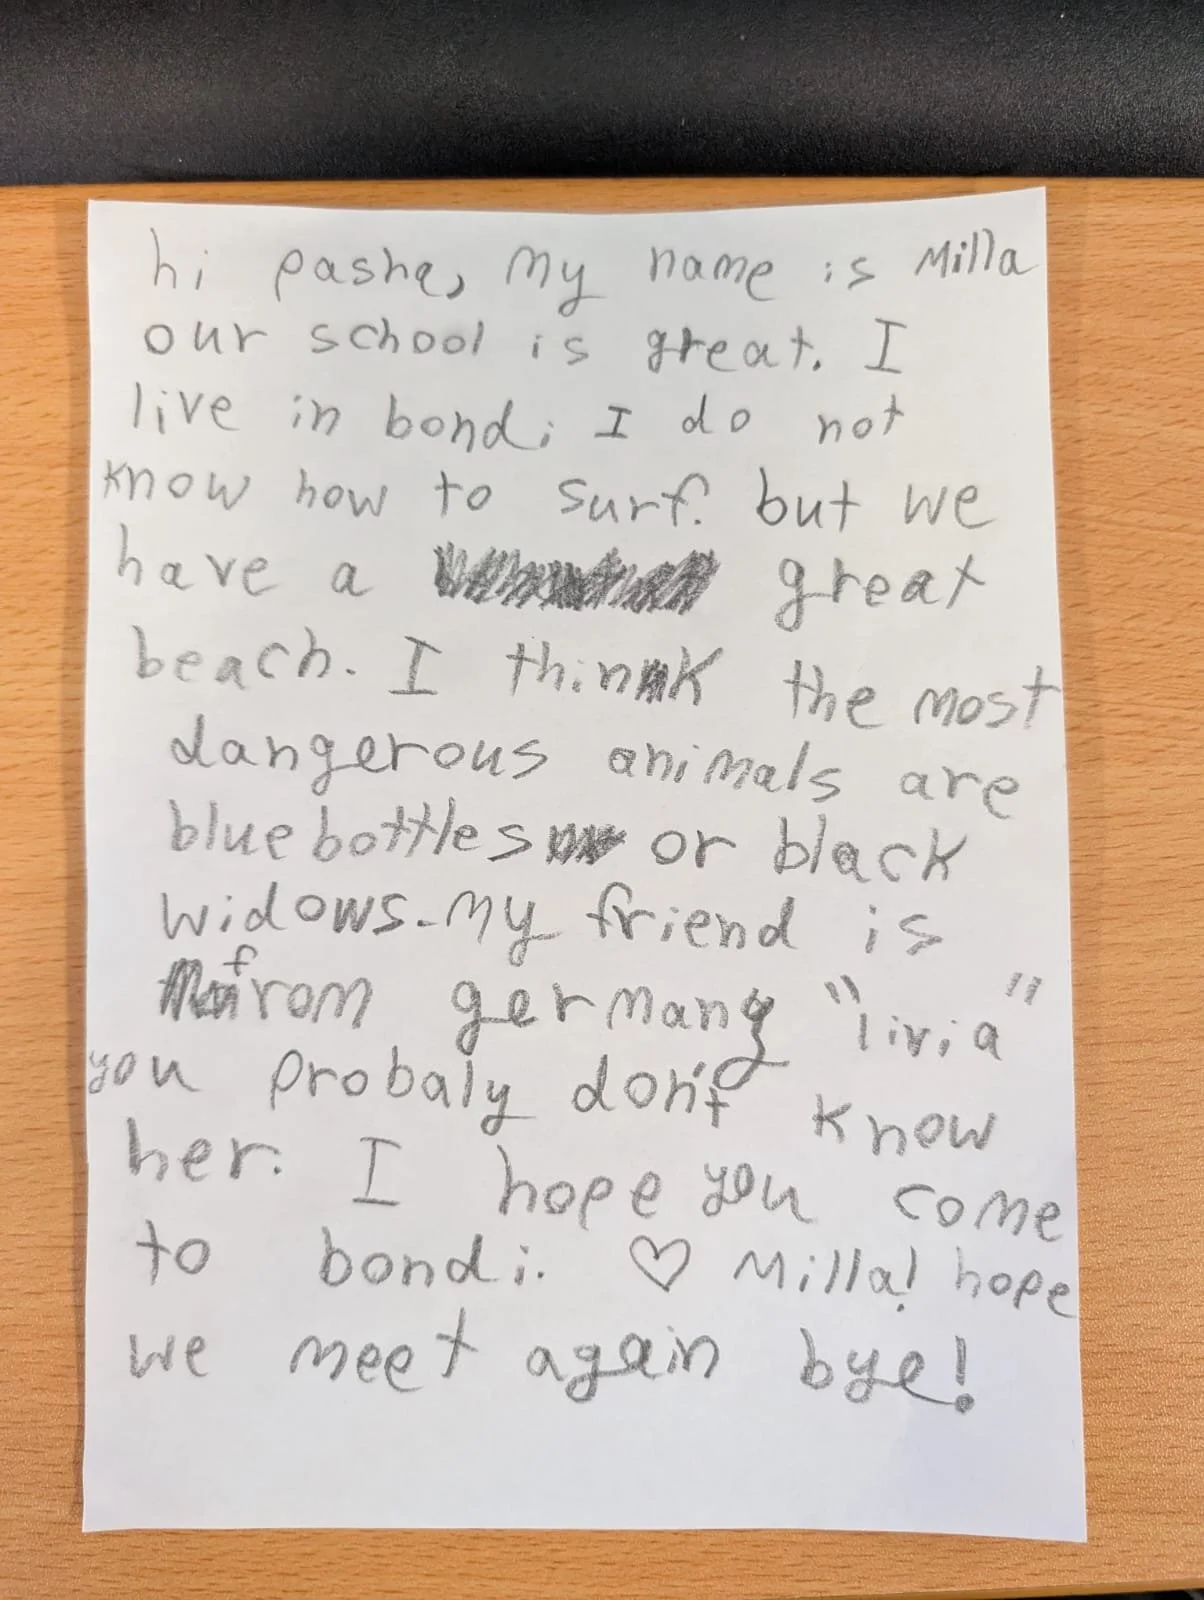 hi pasha, My name is Milla
our school is great. I
live in bondi I do not
know how to surf. but we
have a great
beach. I think the most
dangerous animals are
bluebottles or black
widows. My friend is
from germany "livia"
you probaly don't know
her. I hope you come
to bondi. ♡ Milla! hope
we meet again bye!